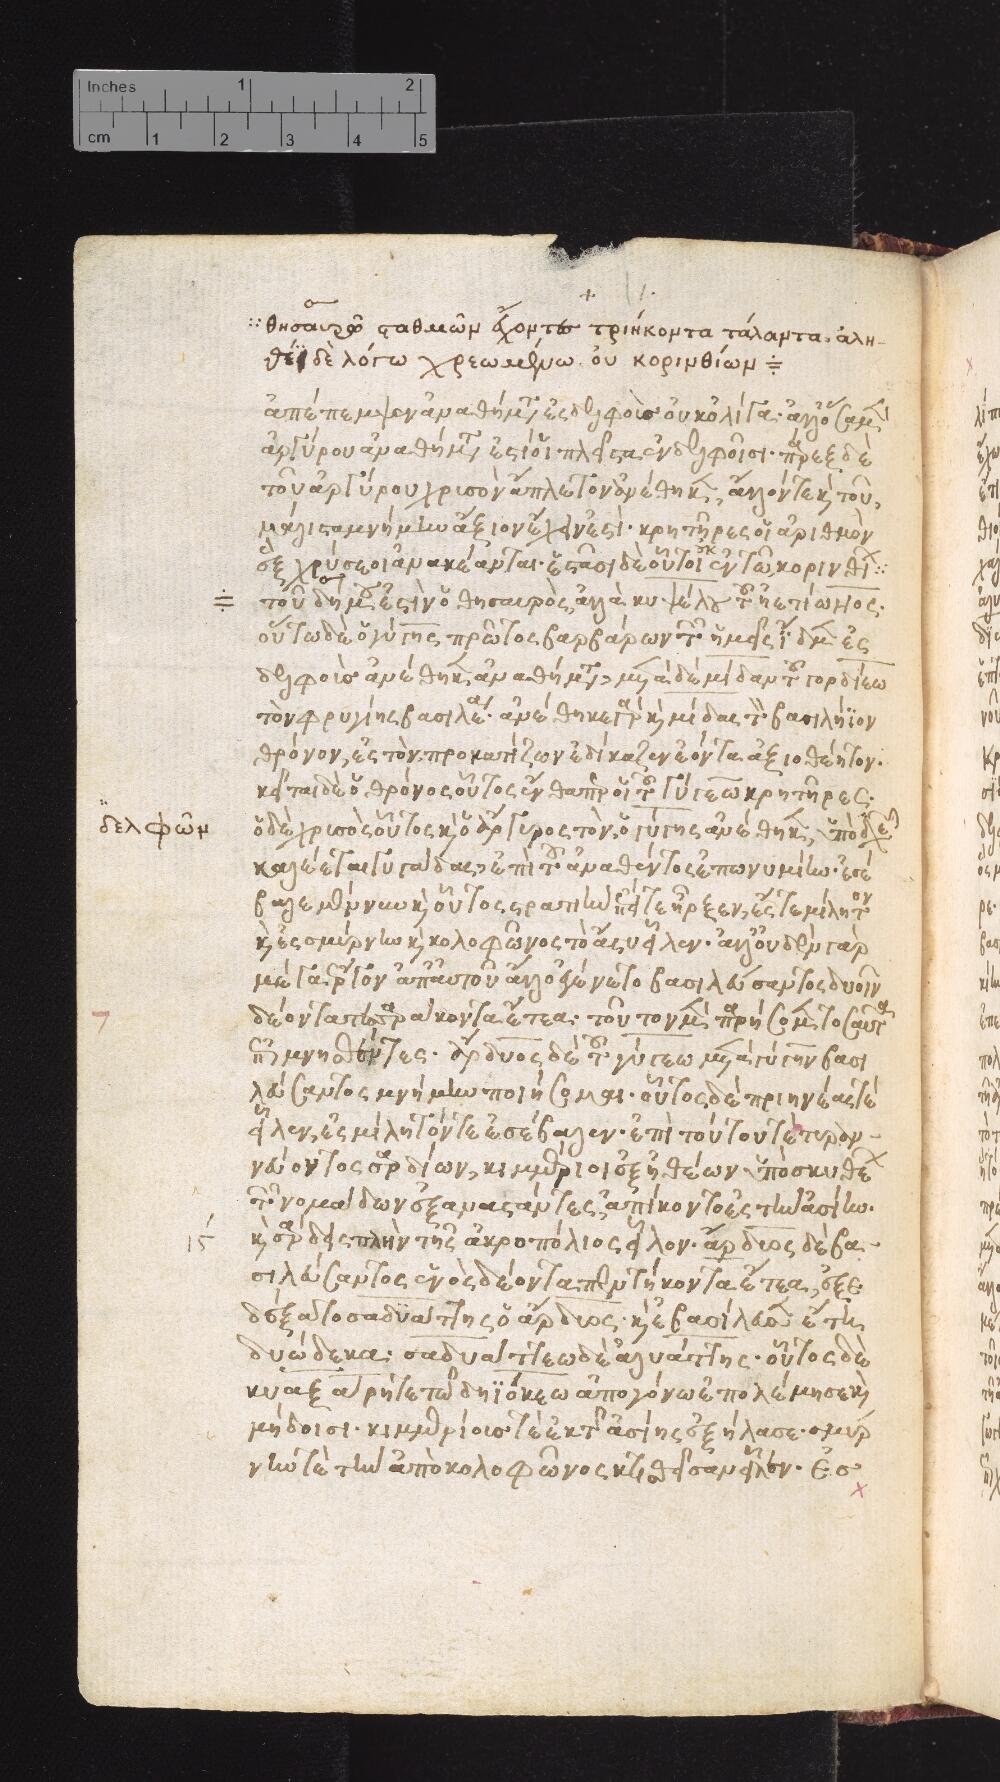 θησαυρῷ σταθμὸν ἔχοντες τριήκοντα τάλαντα. ἀλη-
θέϊ δὲ λόγω χρεωμένω οὐ κορινθίων
ἀπέπεμψεν ἀναθήματα ἐς δελφοὺς οὐκ ὀλίγα· ἀλλ' ὅσα μὲν
ἀργύρου ἀναθήματα ἐστί οἱ πλεῖστα ἐν δελφοῖσι· πάρεξ δὲ
τοῦ ἀργύρου χρυσὸν ἄπλετον ἀνέθηκεν, ἄλλον τε καὶ τοῦ,
μάλιστα μνήμην ἄξιον ἔχειν ἐστί· κρητῆρες οἱ ἀριθμὸν
ἓξ χρύσεοι ἀνακέαται· ἑστᾶσι δὲ οὗτοι ἐν τῶ κορινθίων
τοῦ δημοσίου ἐστὶν ὁ θησαυρὸς, ἀλλὰ κυψέλου τοῦ ἠετίωνος·
οὗτος δὲ ὁ γύγης πρῶτος βαρβάρων τῶν ἡμεῖς ἴδμεν ἐς
δελφοὺς ἀνέθηκεν ἀναθήματα, μετὰ δὲ μίδαν τοῦ γορδίεω
τὸν φρυγίης βασιλέα· ἀνέθηκε γὰρ καὶ μίδας τὸν βασιλήϊον
θρόνον, ἐς τὸν προκατίζων ἐδίκαζεν ἐόντα ἀξιοθέητον·
κεῖται δὲ ὁ θρόνος οὗτος ἔνθαπερ οἱ τοῦ γύγεω κρητῆρες·
δελφῶν
ὁ δὲ χρυσὸς οὗτος καὶ ὁ ἄργυρος τὸν ὁ γύγης ἀνέθηκεν, ὑπὸ δελφῶν
καλέεται γυγάδας, ἐπὶ τοῦ ἀναθέντος ἐπωνυμίην· ἐσέ
βαλε μέν νυν καὶ οὗτος στρατιὴν ἐπεί τε ἦρξεν, ἔς τε μίλητον
καὶ ἐς σμύρνην καὶ κολοφῶνος τὸ ἄστυ εἷλεν· ἀλλ' οὐδὲν γὰρ
μέγα ἔργον ἀπ' αὐτοῦ ἄλλο ἐγένετο βασιλεύσαντος δυοῖν
δέοντα τεσσαράκοντα ἔτεα· τοῦτον μὲν παρήσομεν τοσαῦτα
ἐπιμνησθέντες· ἄρδυος δὲ τοῦ γύγεω μετὰ γύγην βασι
λεύσαντος μνήμην ποιήσομαι· οὗτος δὲ πριηνέας τέ
εἷλεν, ἐς μίλητόν τε ἐσέβαλεν· ἐπὶ τούτου τὲ τυραν-
νεύοντος σαρδίων, κιμμέριοι ἐξ ἠθέων ὑπὸ σκυθέων
τῶν νομάδων ἐξαναστάντες, ἀπίκοντο ἐς τὴν ἀσίην·
ιϛ
καὶ σάρδεις πλὴν τῆς ἀκροπόλιος εἷλον· ἄρδυος δὲ βα-
σιλεύσαντος ἑνὸς δέοντα πεντήκοντα ἔτεα, ἐξε
δέξατο σαδυάττης ὁ ἄρδυος· καὶ ἐβασίλευσεν ἔτεα
δυώδεκα· σαδυάττεω δὲ ἀλυάττης· οὗτος δὲ
κυαξάρη τε τῶ δηϊόκεω ἀπογόνω ἐπολέμησε καὶ
μήδοισι· κιμμερίους τὲ ἐκ τῆς ἀσίης ἐξήλασε· σμύρ
νην τὲ τὴν ἀπὸ κολοφῶνος κτισθεῖσαν εἷλεν· ἐσ